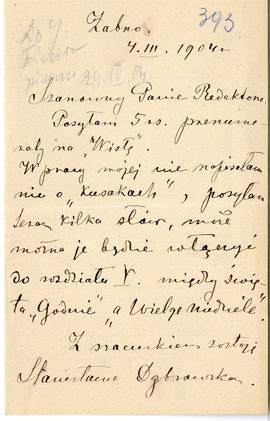 Żabno.
393
7. III. 1904 r
Do
pisano 29. IV. 04
Szanowny Panie Redaktorze
Posyłam 5 rs. prenume-
raty na "Wisłę".
W pracy mojej nie napisałam
nic o "Kusakach", posyłam
teraz kilka słów, może
można je będzie włączyć
do rozdziału V. między świę-
ta "Godnie" a "Wielge niedziele".
Z szacunkiem zostaję
Stanisława Dąbrowska.